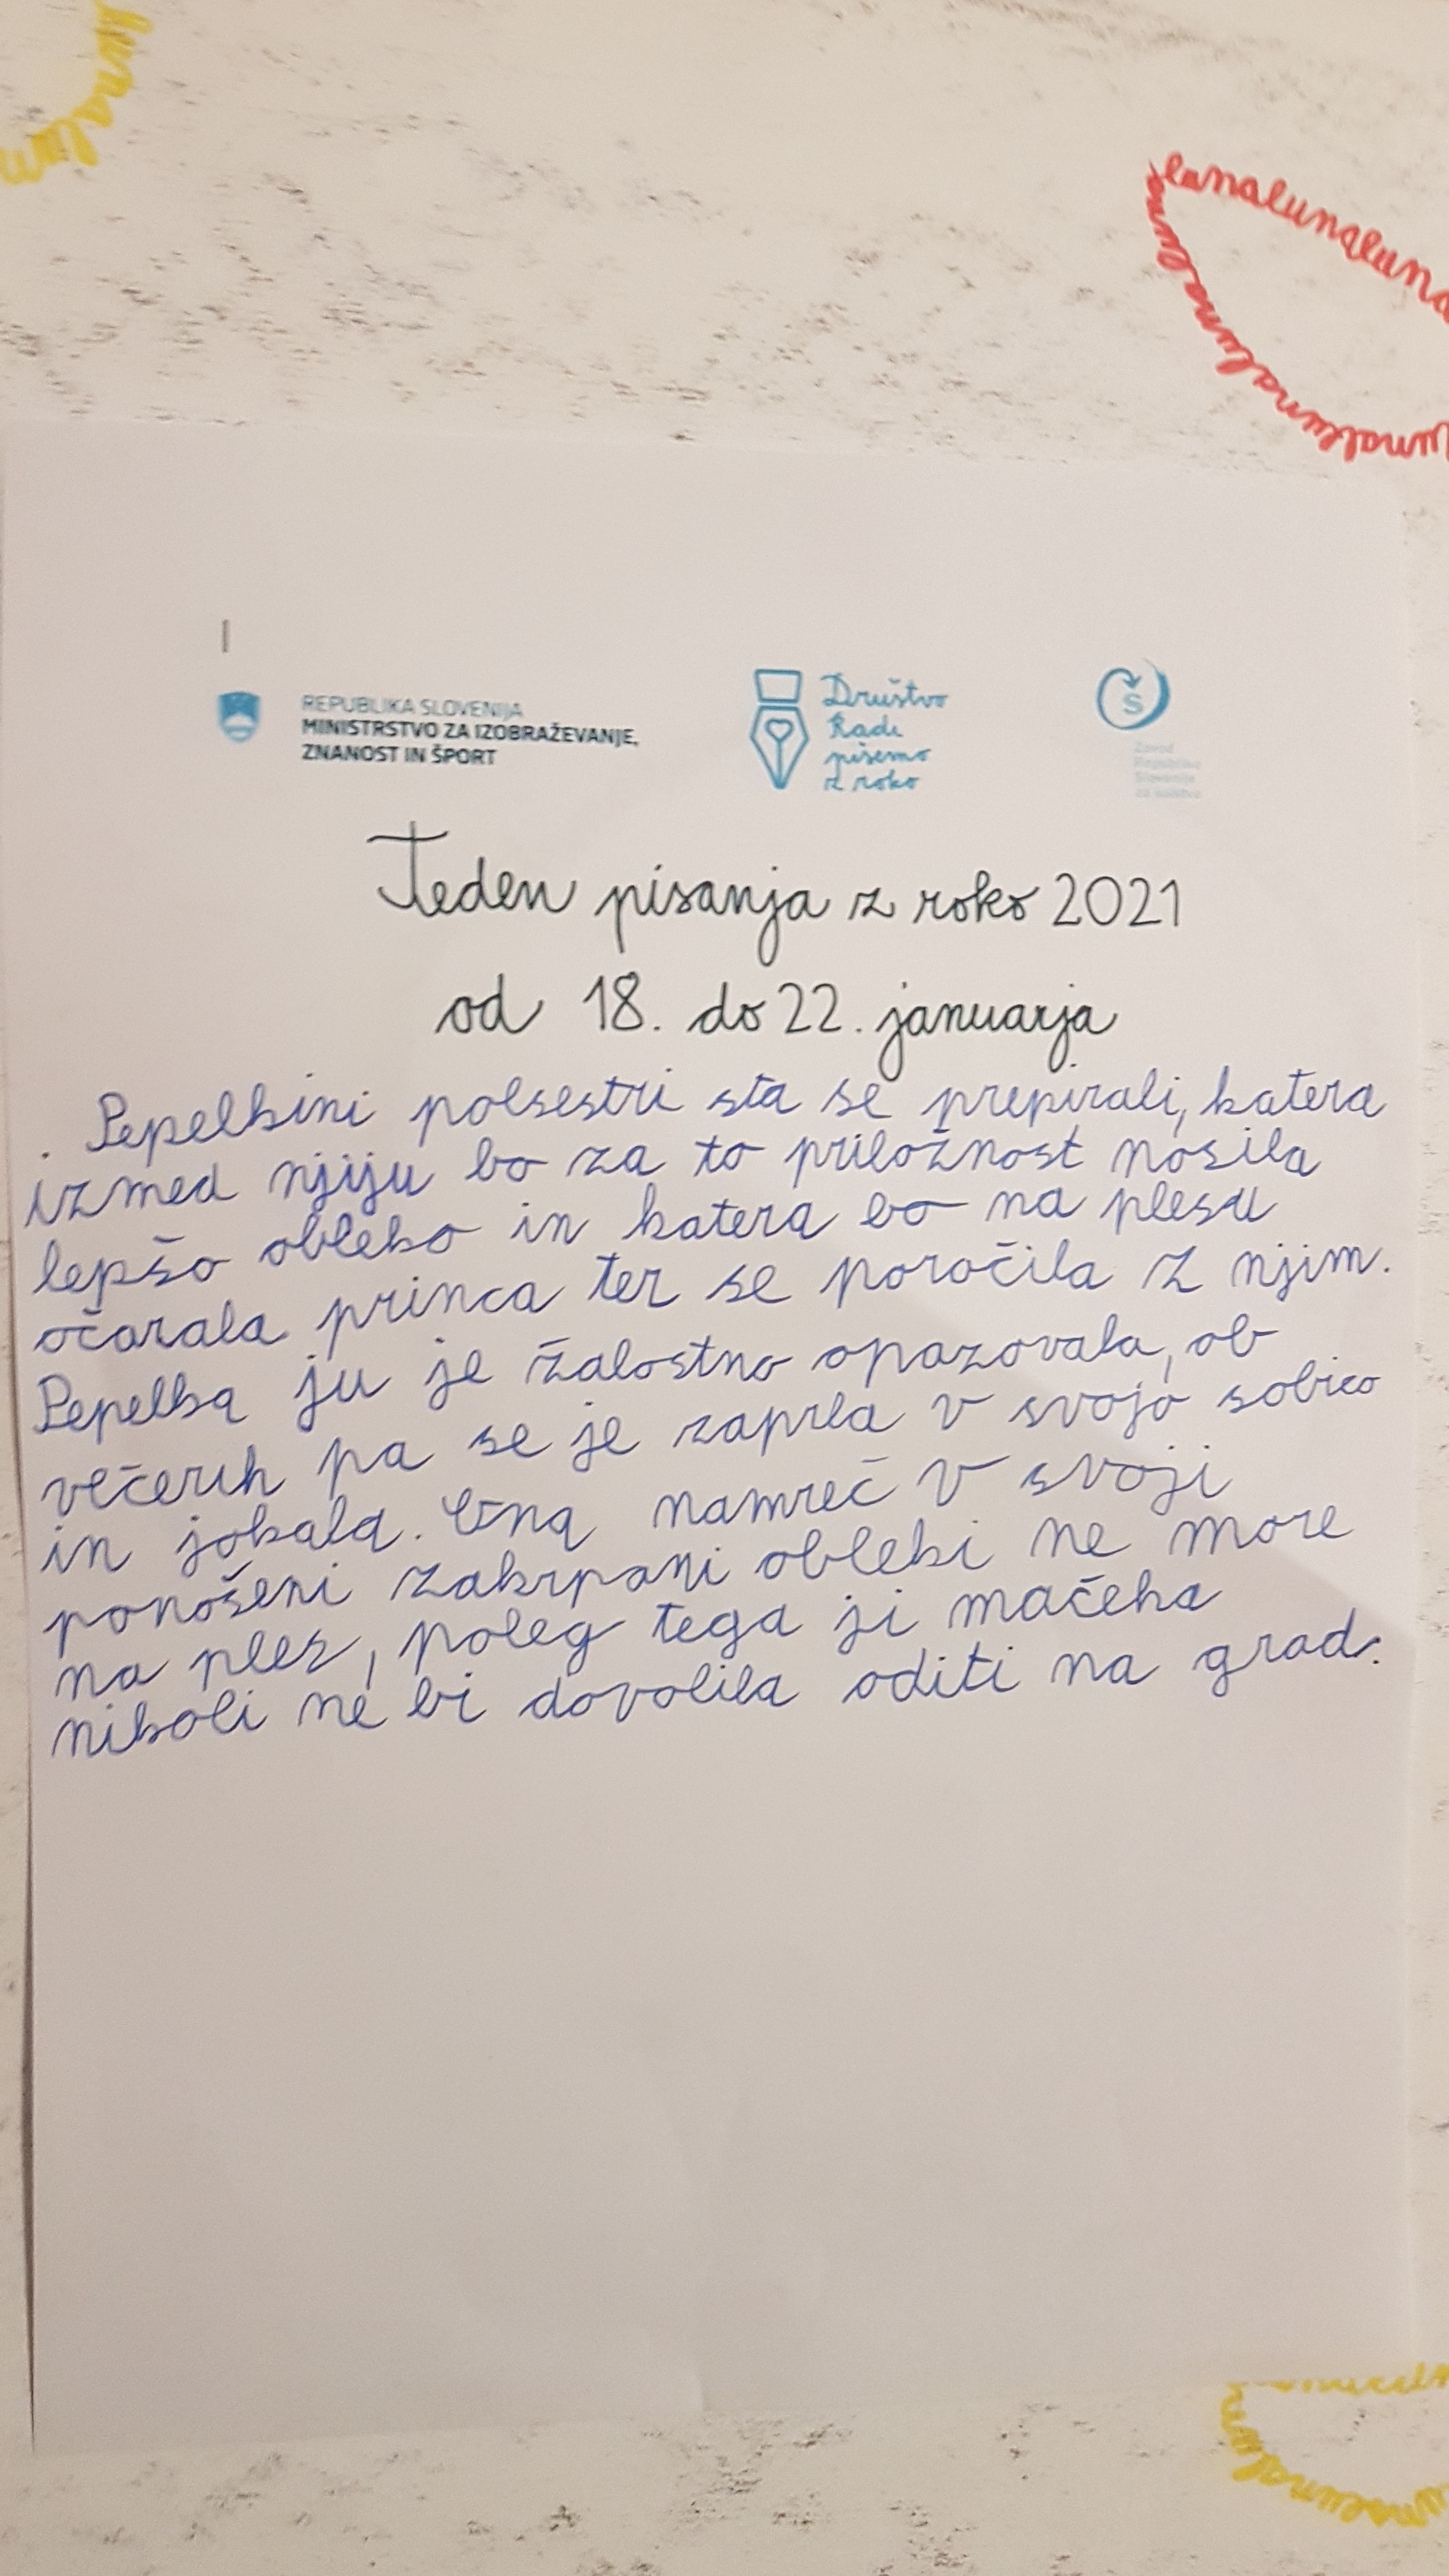 lunalunaluna
lunalunalunaluna
REPUBLIKA SLOVENIJA
MINISTRSTVO ZA IZOBRAŽEVANJE,
ZNANOST IN ŠPORT
Društvo
Radi
pišemo
z roko
Š
Zavod
Republike
Slovenije
za šolstvo
Teden pisanja z roko 2021
od 18. do 22. januarja
Pepelkini polsestri sta se prepirali, katera
izmed njiju bo za to priložnost nosila
lepšo obleko in katera bo na plesu
očarala princa ter se poročila z njim.
Pepelka ju je žalostno opazovala, ob
večerih pa se je zaprla v svojo sobico
in jokala. Ona namreč v svoji
ponošeni zakrpani obleki ne more
na ples, poleg tega ji mačeha
nikoli ne bi dovolila oditi na grad.